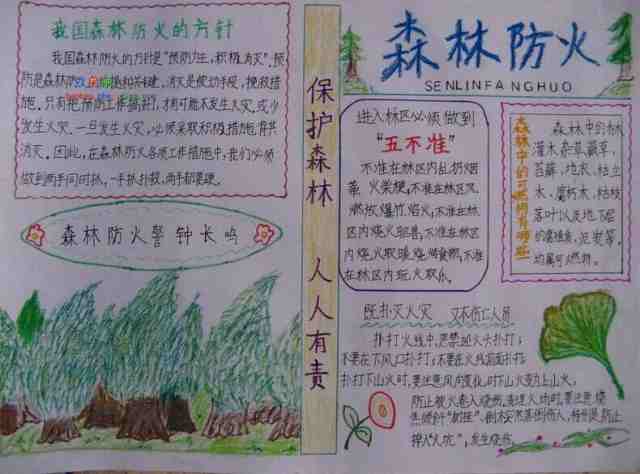 我国森林防火的方针
我国森林防火的方针是"预防为主,积极消灭"。预
防是森林防火的前提和关键,消灭是被动手段,挽救措
施,只有把预防工作搞好了,才有可能不发生火灾或少
发生火灾。一旦发生火灾,必须采取积极措施将其
消灭。因此,在森林防火各项工作措施中,我们必须
做到两手同时抓,一手抓扑救,两手都要硬。
森林防火警钟长鸣
保护森林 人人有责
森林防火
SENLINFANGHUO
进入林区必须做到
"五不准"
不准在林区内乱扔烟
蒂、火柴梗;不准在林区
燃放爆竹、焰火;不准在林
区内烧火驱兽;不准在林区
内烧火取暖、烧烤食物;不准
在林区内玩火取乐。
森林中的可燃物有哪些
森林中的树
灌木、杂草、藏草、
苔藓、地衣、枯立
木、腐朽木、枯枝
落叶以及地下层
的腐殖质、泥炭等,
均属可火燃料。
既扑灭火灾 又不伤亡人员
扑打火线中,严禁迎火头扑打;
不要在下风口扑打;不要在火线前面扑打;
扑打下山火时,要注意风向变化,时下山火变为上山火;
防止被火卷入烧伤。清理火场时,要注意
倒木突然落倒伤人,特别是防止
掉入"火坑",发生烧伤。